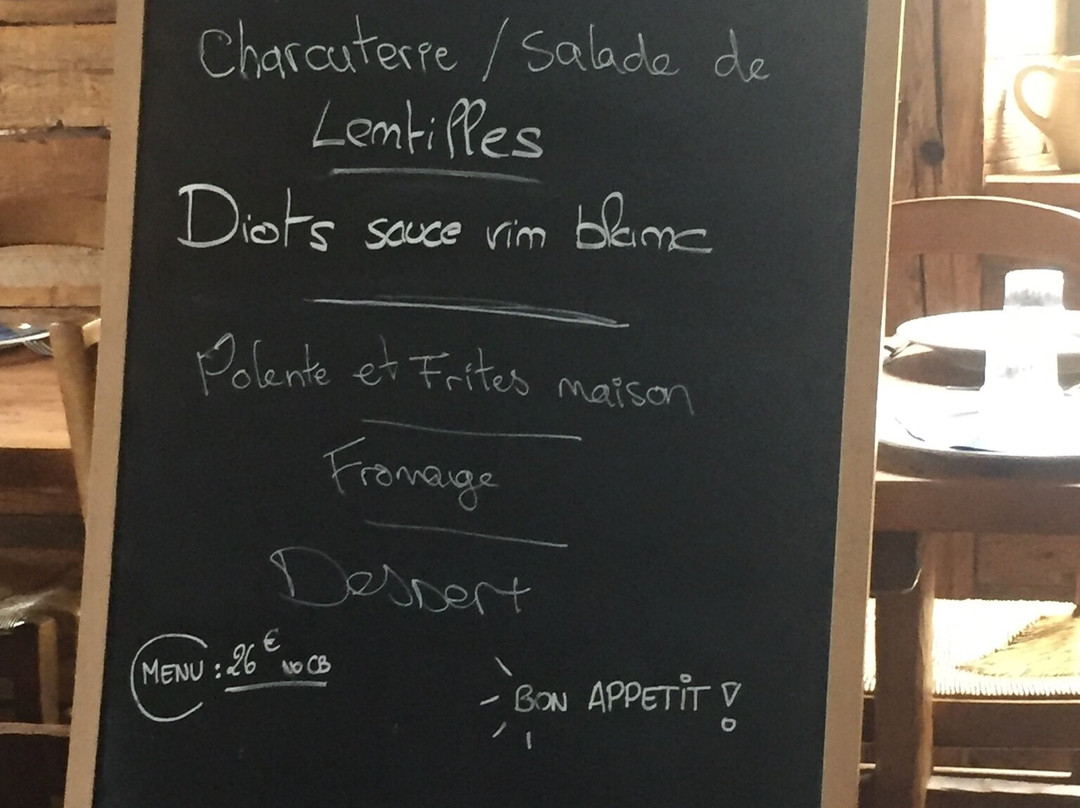 Charcuterie / Salade de
Lentilles
Diots sauce vin blanc
Polente et Frites maison
Fromage
Dessert
MENU : 26€ NO CB
BON APPETIT !